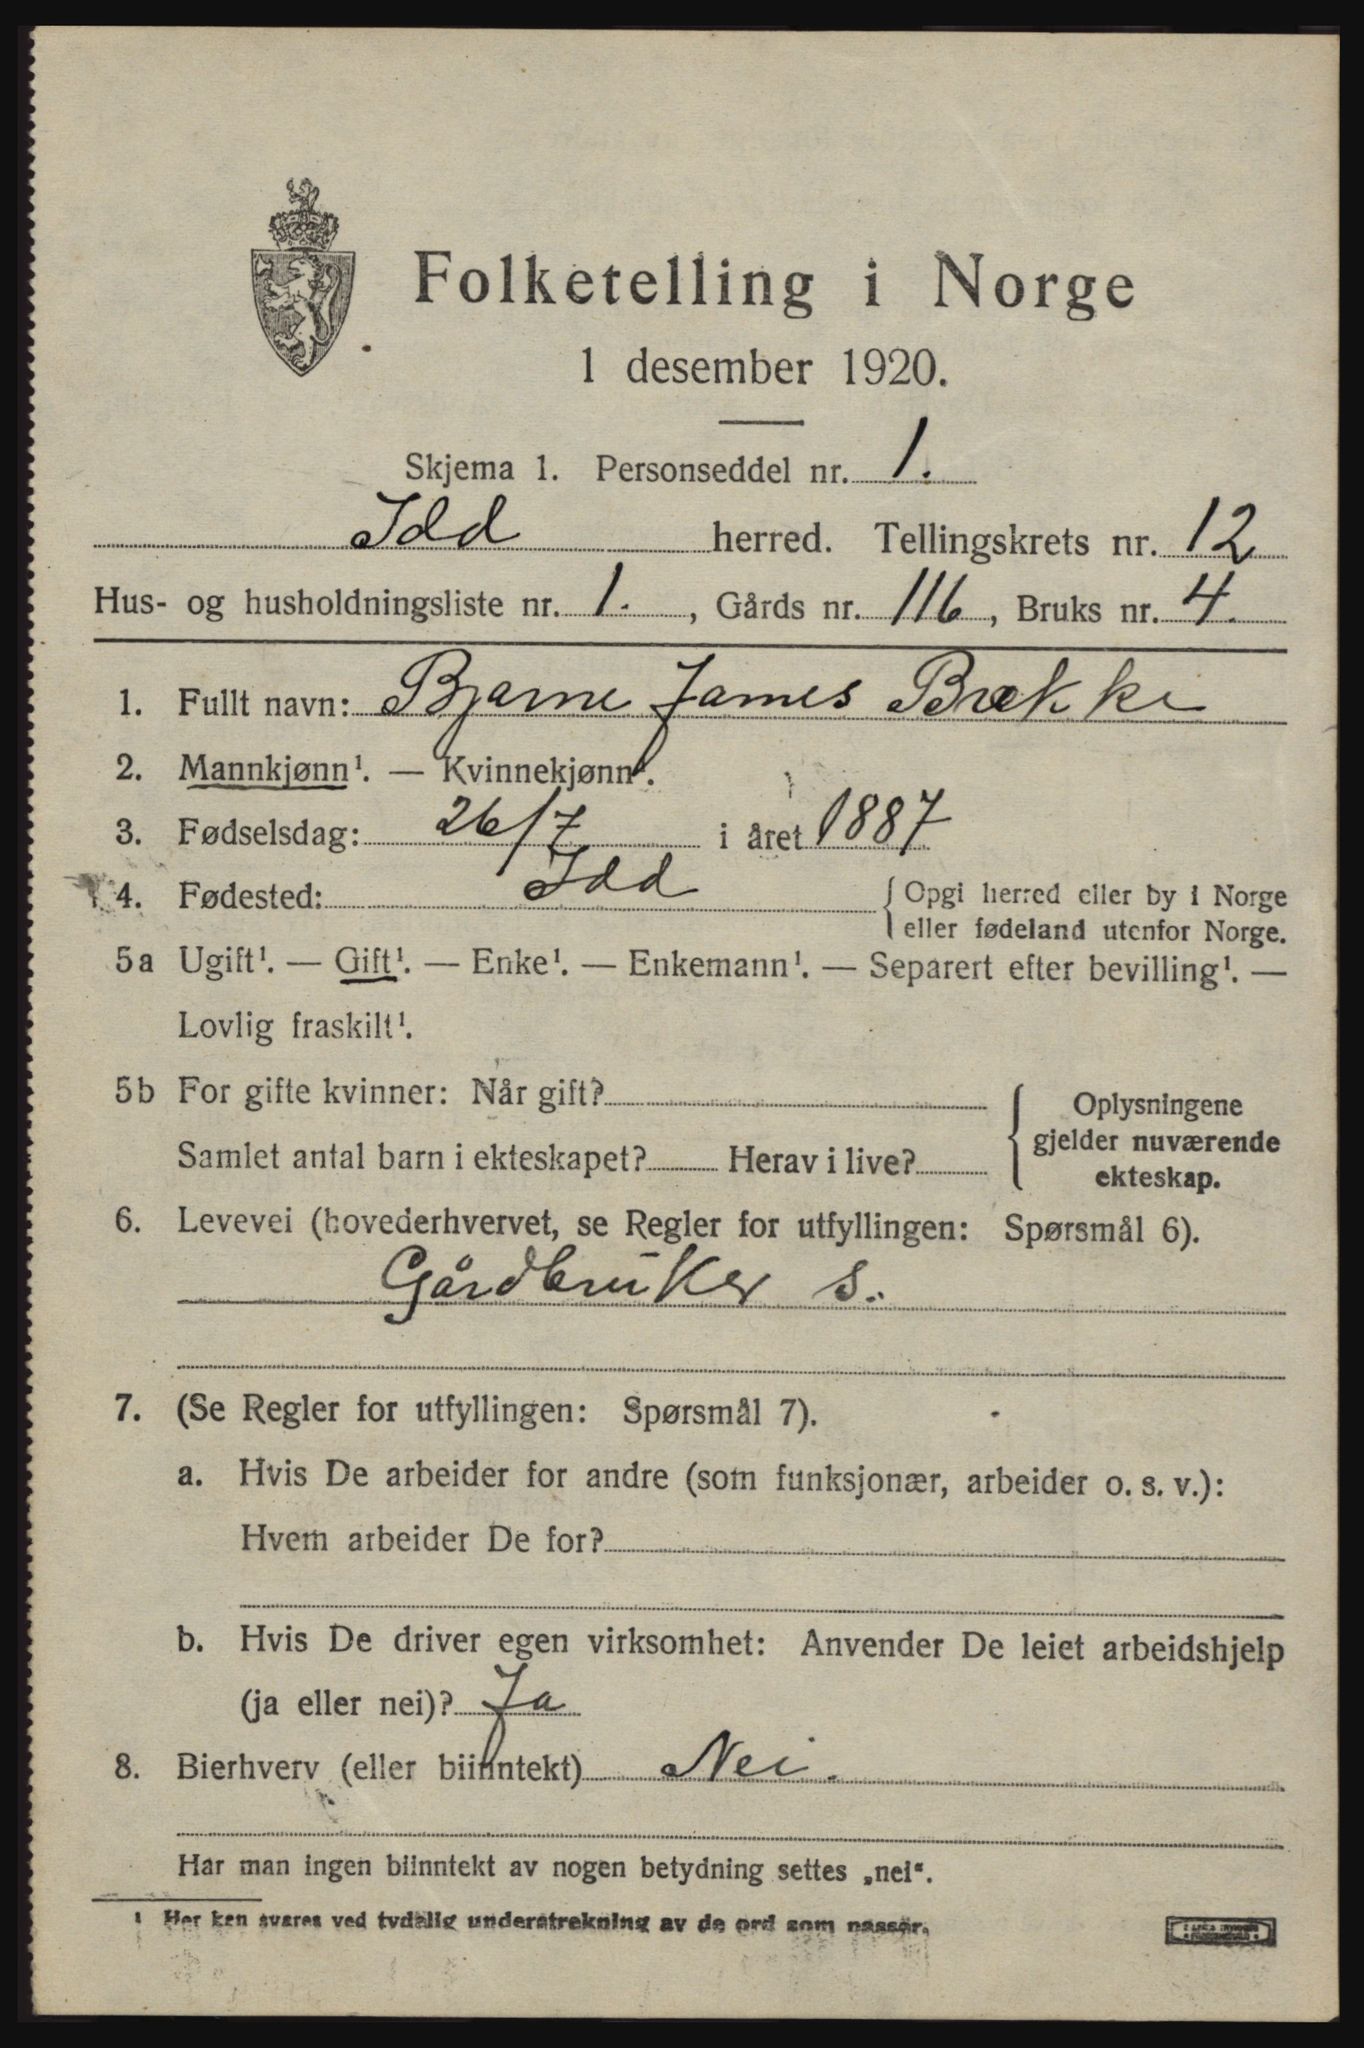 Folketelling i Norge
1 desember 1920.
Skjema 1. Personseddel nr. 1.
Idd herred. Tellingskrets nr. 12
Hus- og husholdningsliste nr. 1., Gårds nr. 116, Bruks nr. 4.
1. Fullt navn: Bjarne James Brække
2. Mannkjønn¹. — Kvinnekjønn¹.
3. Fødselsdag: 26/7 i året 1887
4. Fødested: Idd { Opgi herred eller by i Norge
eller fødeland utenfor Norge.
5a Ugift¹. — Gift¹. — Enke¹. — Enkemann¹. — Separert efter bevilling¹. —
Lovlig fraskilt¹.
5b For gifte kvinner: Når gift? { Oplysningene
gjelder nuværende
Samlet antal barn i ekteskapet? Herav i live?
ekteskap.
6. Levevei (hovederhvervet, se Regler for utfyllingen: Spørsmål 6).
Gårdbruker s.
7. (Se Regler for utfyllingen: Spørsmål 7).
a. Hvis De arbeider for andre (som funksjonær, arbeider o. s. v.):
Hvem arbeider De for?
b. Hvis De driver egen virksomhet: Anvender De leiet arbeidshjelp
(ja eller nei)? Ja
8. Bierhverv (eller biinntekt) Nei.
Har man ingen biinntekt av nogen betydning settes „nei“.
¹ Her kan svares ved tydelig understrekning av de ord som passer.